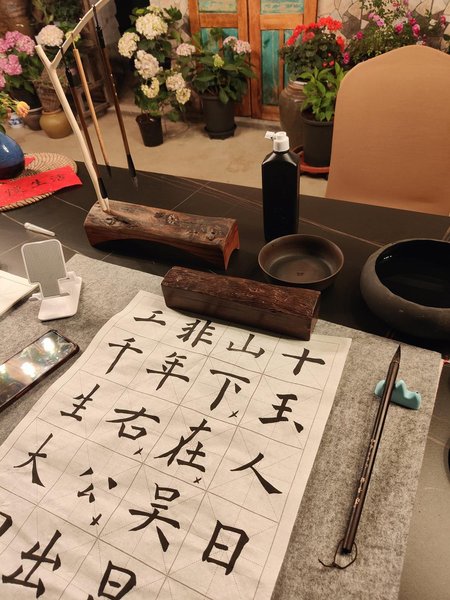 十玉人日
山下在吴日
非年右公出
工千生大